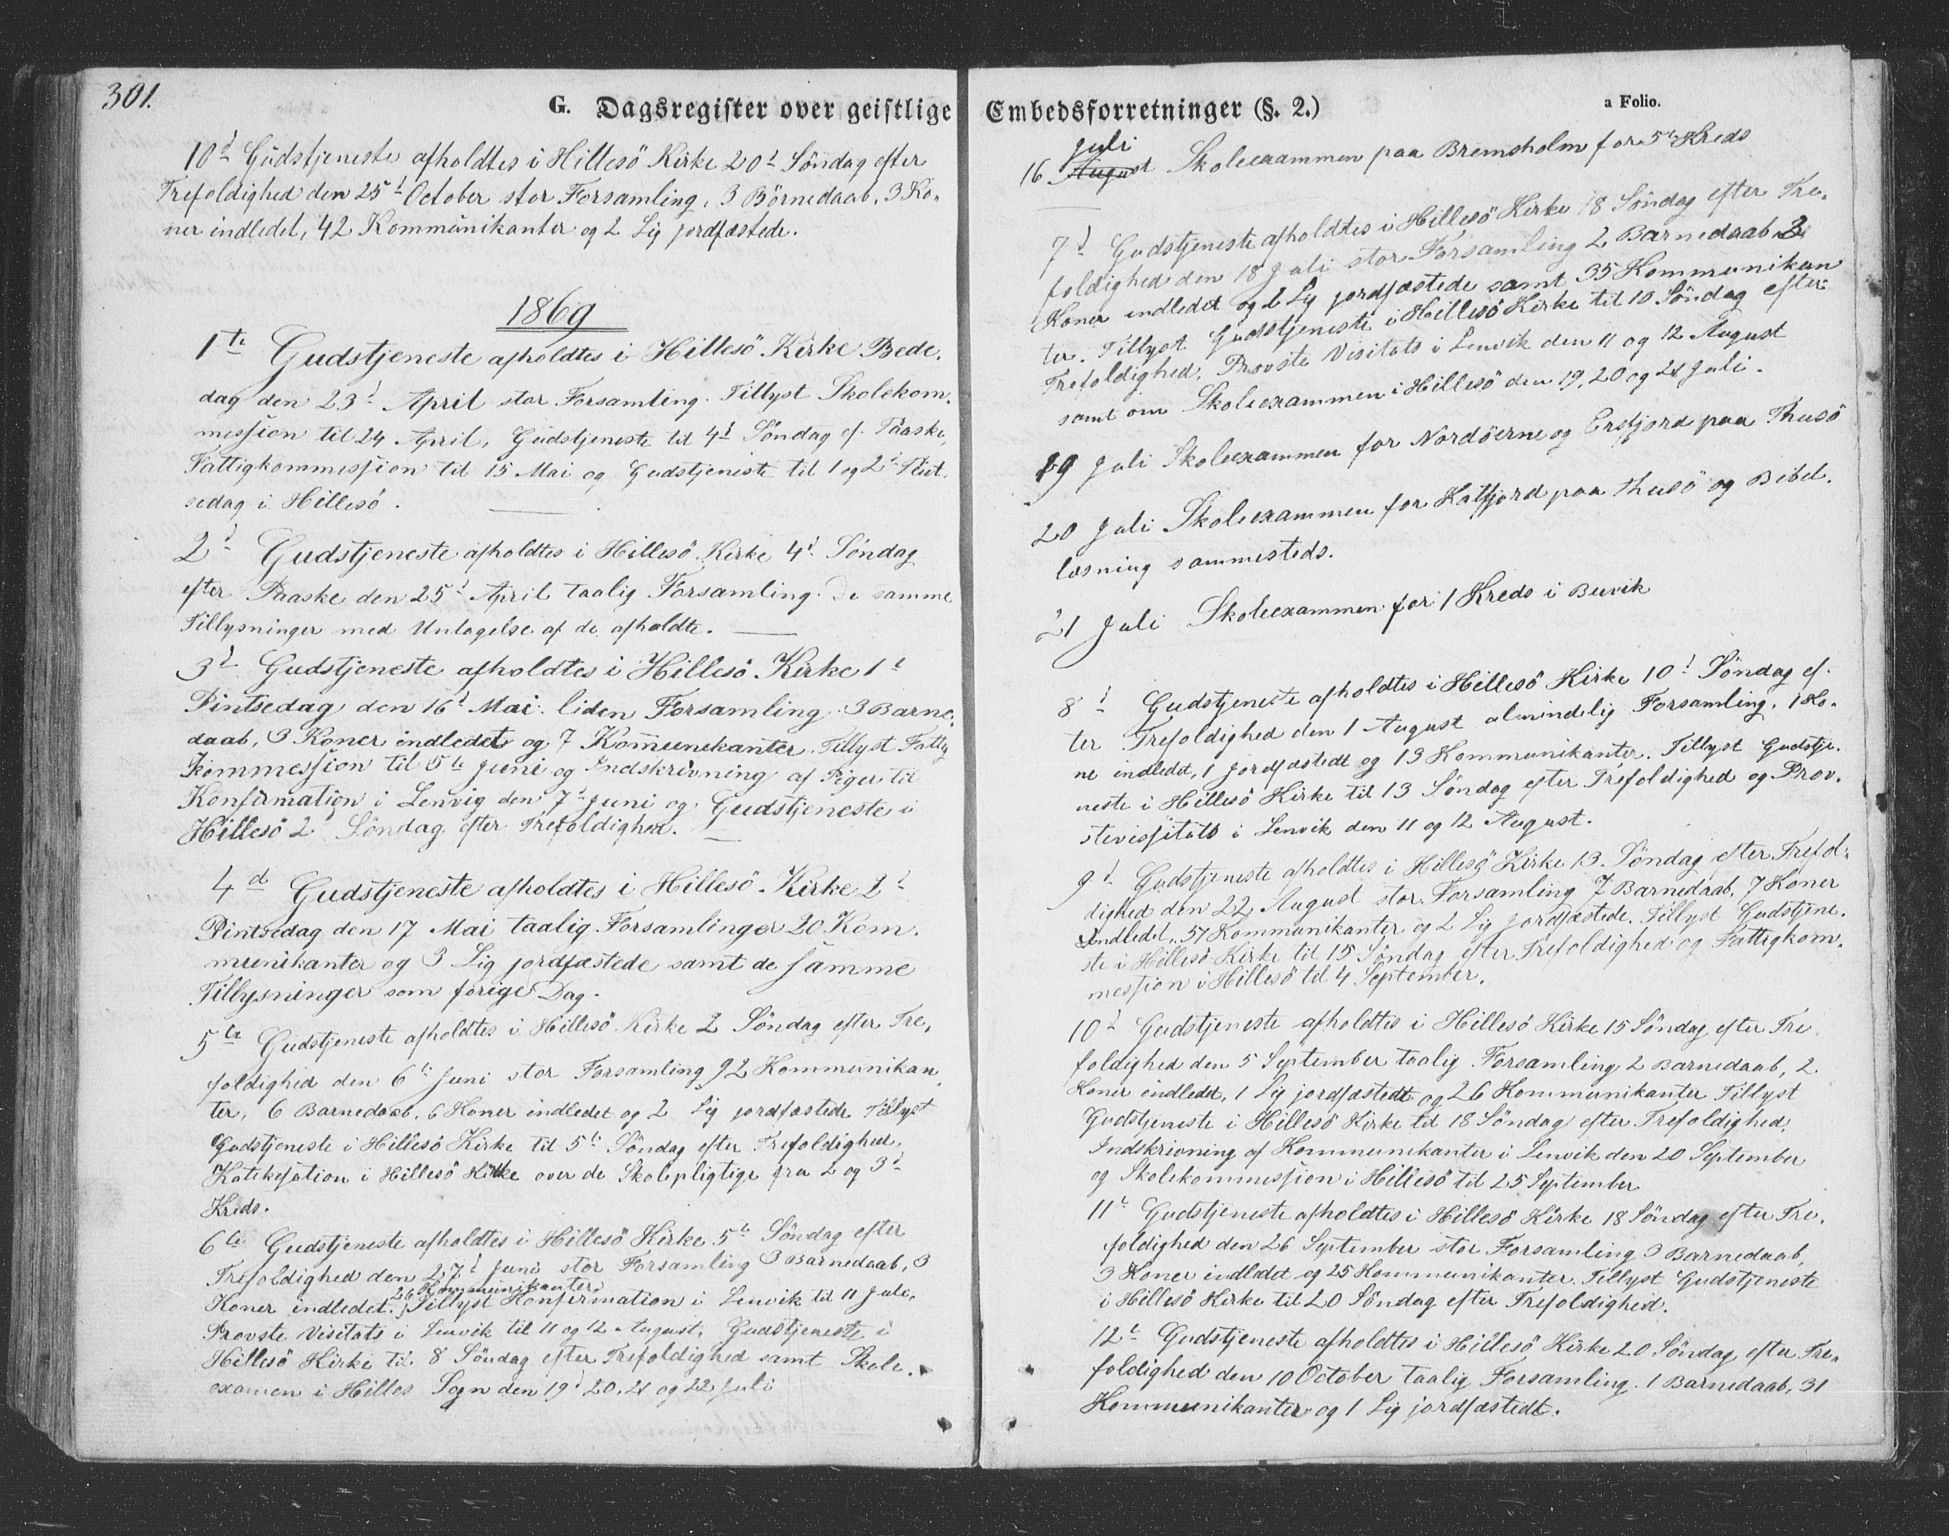 301.
G. Dagsregister over geistlige
10d Gudstjeneste afholdtes i Hillesö Kirke 20d Söndag efter
Trefoldighed den 25d October stor Forsamling, 3 Börnedaab, 3 Ko-
ner indledet, 42 Kommunikanter og 2 Lig jordfæstede.
1869
1te Gudstjeneste afholdtes i Hillesö Kirke Bede,
dag den 23d April stor Forsamling. Tillyst Skolekom-
messjon til 24 April, Gudstjeneste til 4d Söndag ef. Paaske,
Fattigkommessjon til 15 Mai og Gudstjeneste til 1 og 2d Pint-
sedag i Hillesö.
2d Gudstjeneste afholdtes i Hillesö Kirke 4d Söndag
efter Paaske den 25d April taalig Forsamling. De samme
Tillysninger med Untagelse af de afholdte.
3d Gudstjeneste afholdtes i Hillesö Kirke 1t
Pintsedag den 16d Mai. liden Forsamling. 3 Barne-
daab, 3 Koner indledet og 7 Kommunikanter. Tillyst Fattig
Kommessjon til 5te Juni og Indskrivning af Piger til
Konfirmation i Lenvig den 7d Juni og Gudstjeneste i
Hillesö 2d Söndag efter Trefoldighed.
4d Gudstjeneste afholdtes i Hillesö Kirke 2d
Pintsedag den 17 Mai taalig Forsamlinger 20 Kom-
munikanter og 3 Lig jordfæstede samt de samme
Tillysninger som forige Dag.
5te Gudstjeneste afholdtes i Hillesö Kirke 2 Söndag efter Tre,
foldighed den 6te Juni stor Forsamling 92 Kommunikan,
ter, 6 Barnedaab, 6 Koner indledet og 2 Lig jordfæstede Tillyst
Gudstjeneste i Hillesö Kirke til 5te Söndag efter Trefoldighed,
Katekesation i Hillesö Kirke over de Skolepligtige fra 2 og 3d
Kreds.
6te Gudstjeneste afholdtes i Hillesö Kirke 5te Söndag efter
Trefoldighed den 27d Juni stor Forsamling 3 Barnedaab, 3
26 Kommunikanter
Koner indledet. Tillyst Konfirmation i Lenvik til 11 Juli,
Provste Visitats i Lenvik til 11 og 12 August, Gudstjeneste i
Hillesö Kirke til 8 Söndag efter Trefoldighed samt Skole-
examen i Hilles Sogn den 19d 20, 21 og 22 Juli
Embedsforretninger (§. 2.)
a Folio.
Juli
16 August Skoleexammen paa Bremsholm for 5te Kreds
7d Gudstjeneste afholdtes i Hillesö Kirke 18 Söndag efter Tre,
foldighed den 18 Juli stor Forsamling 2 Barnedaab 2
Koner indledet og 2 Lig jordfæstede samt 35 Kommunikan
ter. Tillyst Gudstjeneste i Hillesö Kirke til 10 Söndag efter
Trefoldighed, Provste Visitats i Lenvik den 11 og 12 August
samt om Skoleexammen i Hillesö den 19, 20 og 21 Juli.
19 Juli Skoleexammen for Nordöerne og Ersfjord paa Thusö
20 Juli Skoleexammen for Katfjord paa Thusö og Bibel,
læsning sammesteds.
21 Juli Skoleexammen for 1 Kreds i Buvik
8d Gudstjeneste afholdtes i Hillesö Kirke 10d Söndag ef-
ter Trefoldighed den 1 August almindelig Forsamling, 1 Ko-
ne indledet, 1 jordfæstedt og 13 Kommunikanter. Tillyst Gudstje-
neste i Hillesö Kirke til 13 Söndag efter Trefoldighed og Prov-
stevissitats i Lenvik den 11 og 12 August.
9d Gudstjeneste afholdtes i Hillesö Kirke 13. Söndag efter Trefol-
dighed den 22 August stor Forsamling 7 Barnedaab, 7 Koner
indledet, 57 Kommunikanter og 2 Lig jordfæstede. Tillyst Gudstjene-
ste i Hillesö Kirke til 15 Söndag efter Trefoldighed og Fattigkom-
messjon i Hillesö til 4 September.
10d Gudstjeneste afholdtes i Hillesö Kirke 15 Söndag efter Tre
foldighed den 5 September taalig Forsamling, 2 Barnedaab, 2
Koner indledt, 1 Lig jordfæstedt og 26 Kommunikanter Tillyst
Gudstjeneste i Hillesö Kirke til 18 Söndag efter Trefoldighed,
Indskrivning af Kommunikanter i Lenvik den 20 September
og Skolekommessjon i Hillesö til 25 September
11te Gudstjeneste afholdtes i Hillesö Kirke 18 Söndag efter Tre,
foldighed den 26 September stor Forsamling 3 Barnedaab,
3 Koner indledet og 25 Kommunikanter. Tillyst Gudstjeneste
i Hillesö Kirke til 20 Söndag efter Trefoldighed.
12te Gudstjeneste afholdtes i Hillesö Kirke 20. Söndag efter Tre-
foldighed den 10 October taalig Forsamling. 1 Barnedaab, 31
Kommunikanter og 1 Lig jordfæstedt.